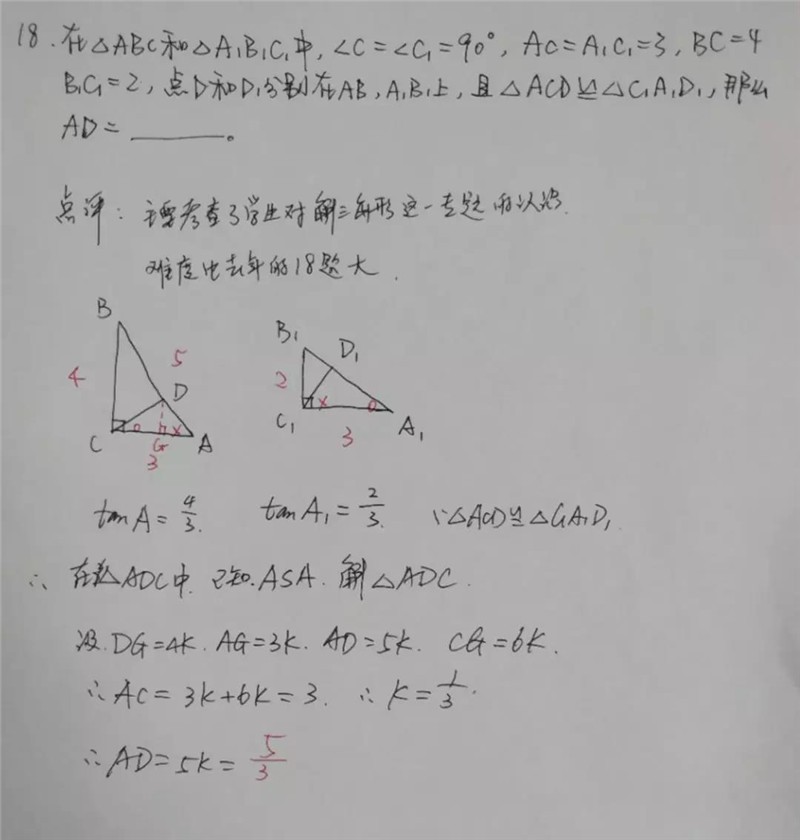 18.在△ABC和△A₁B₁C₁中,∠C=∠C₁=90°,AC=A₁C₁=3,BC=4
B₁C₁=2,点D和D₁分别在AB,A₁B₁上,且△ACD≌△C₁A₁D₁,那么
AD=______。
点评:主要考查了学生对解三角形这一专题的认识.
难度比去年的18题大.
B
4
5
D
C
o
x
G
A
3
B₁
D₁
2
C₁
x
o
A₁
3
tanA=4/3. tanA₁=2/3. ∵△ACD≌△C₁A₁D₁
∴在△ADC中.已知.ASA.解△ADC.
设.DG=4K.AG=3K.AD=5K.CG=6K.
∴AC=3K+6K=3.∴K=1/3.
∴AD=5K=5/3